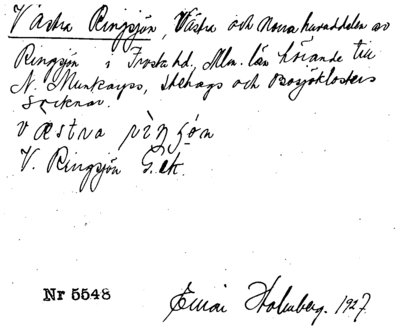 Västra Ringsjön, Västra och Norra huvuddelen av
Ringsjön i Frosta hd, Mlm. län hörande till
N. Munkarps, Stehags och Bosjöklosters
socknar.
væstra riŋʃøn
V. Ringsjön G.ek.
Nr 5548
Einar Holmberg. 1927.